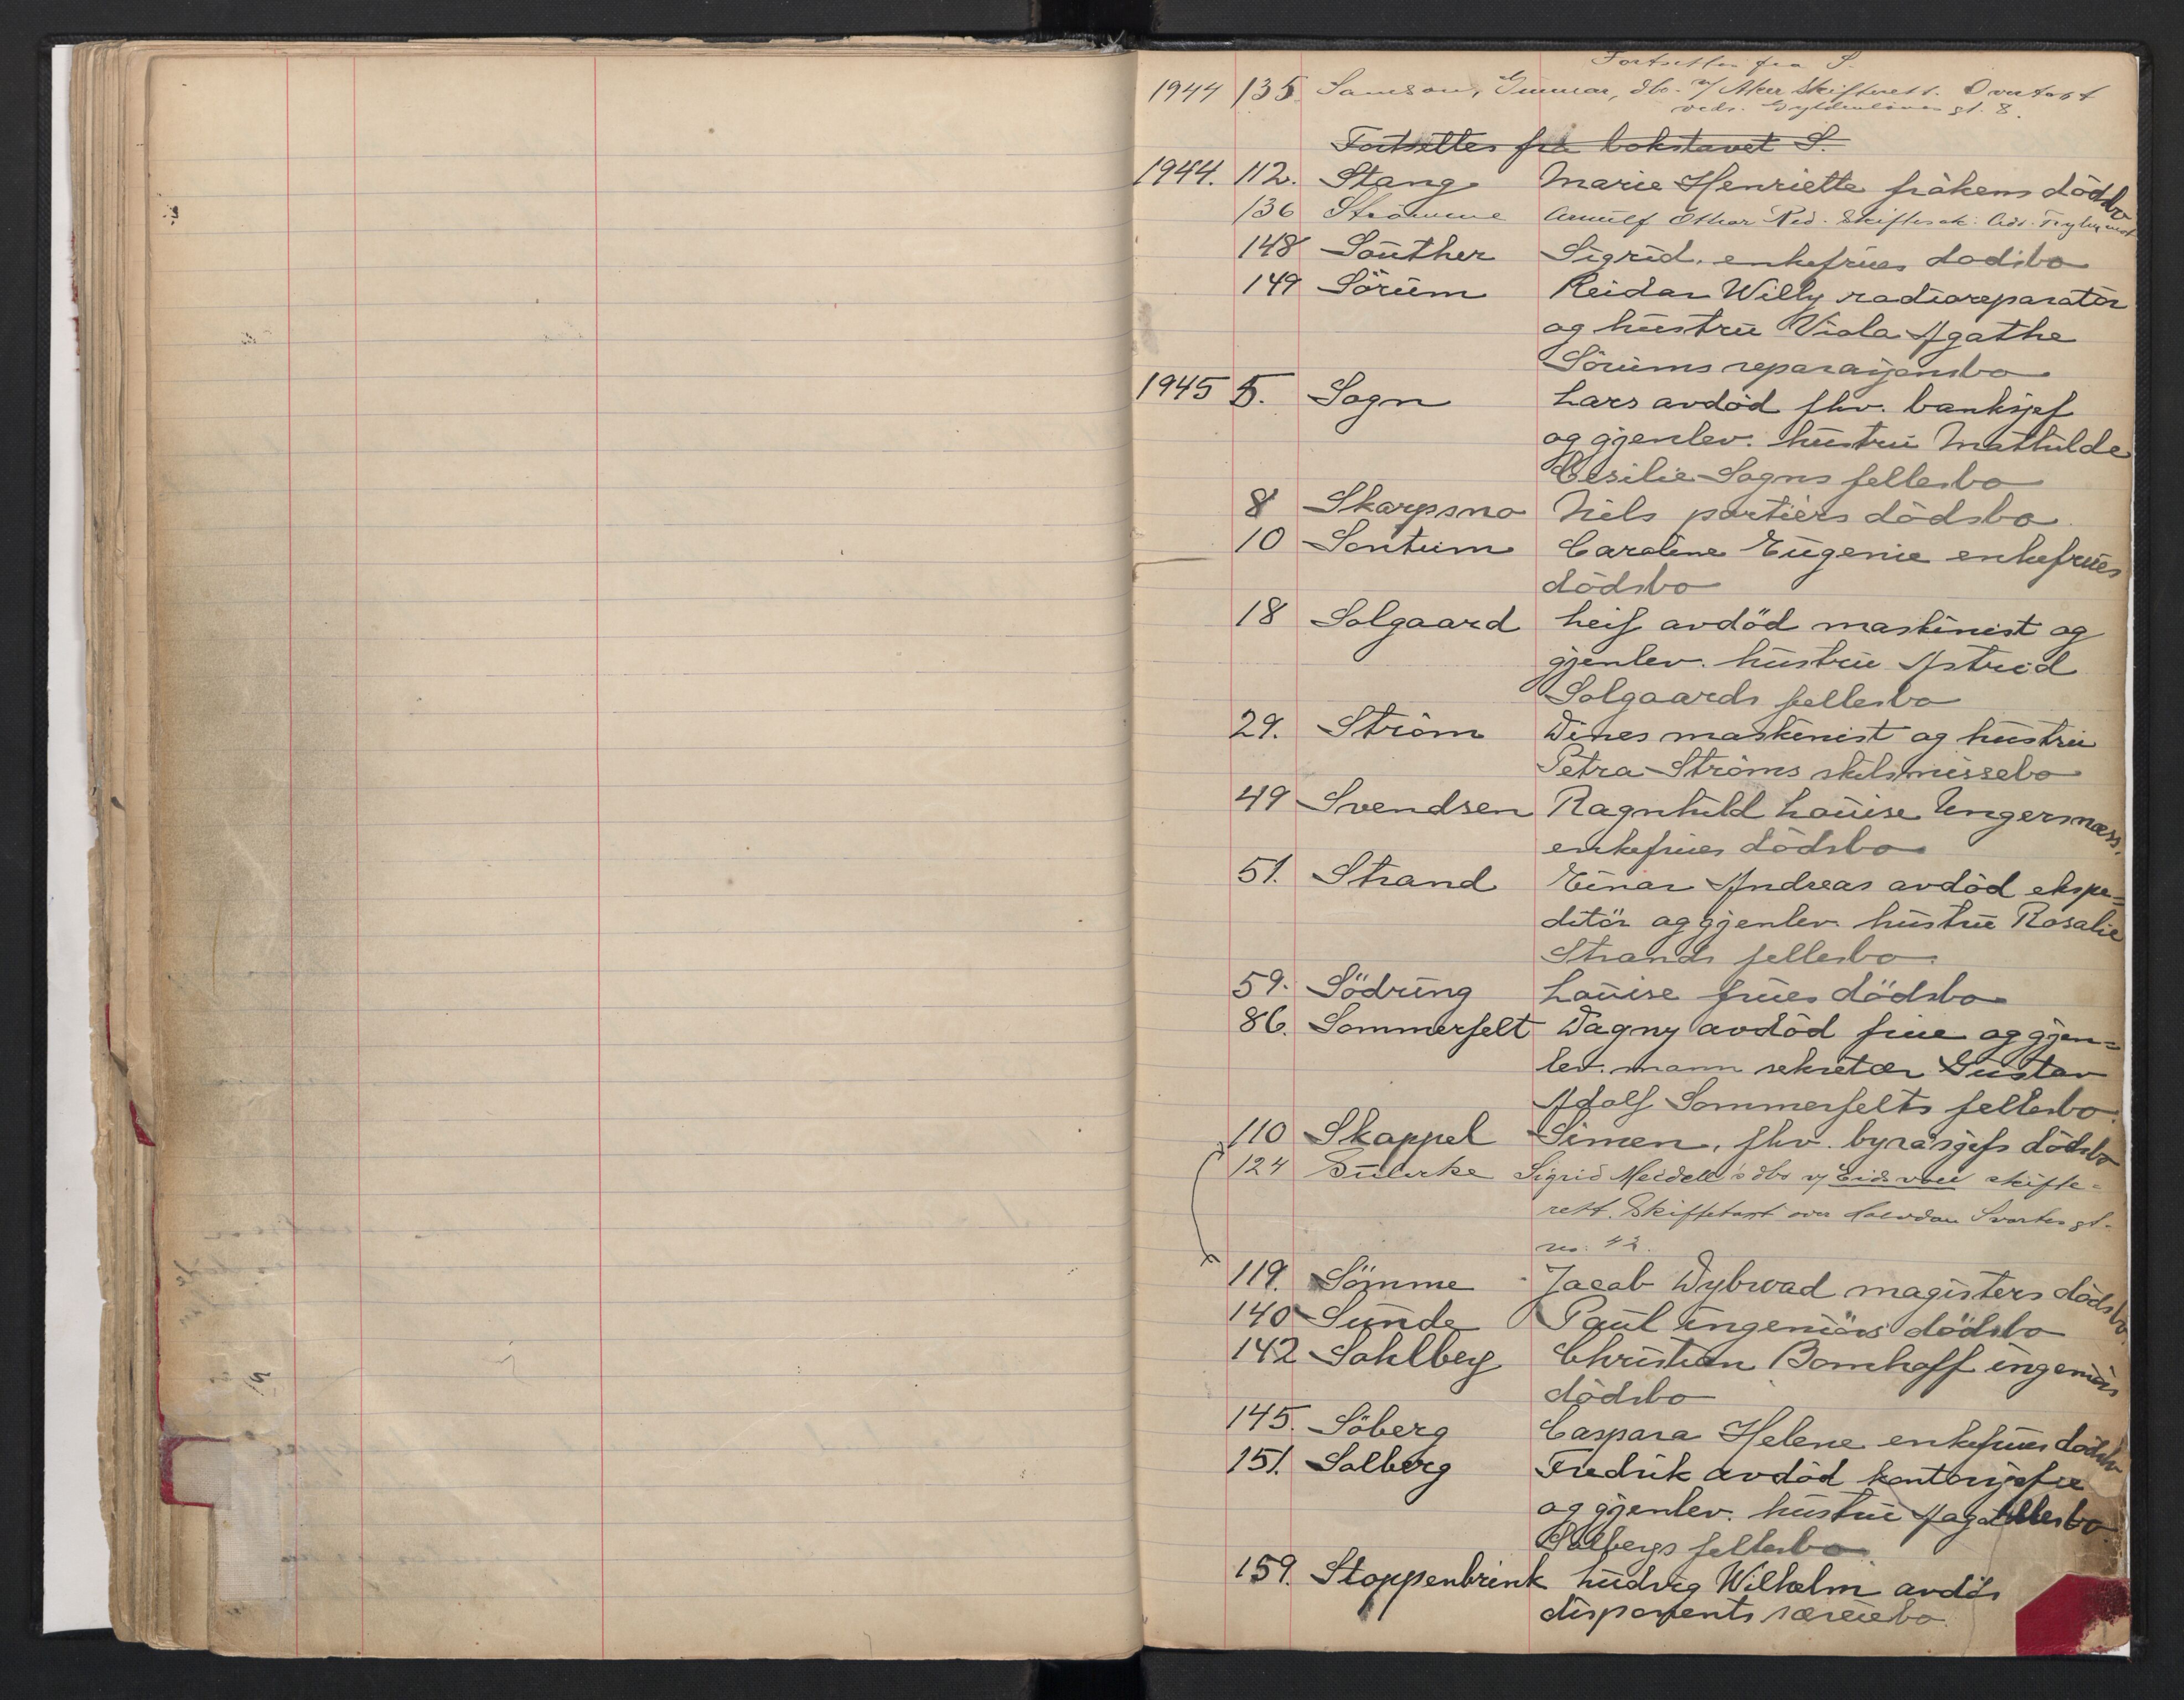 Fortsettes fra S.
1944 135 Samson, Gunnar, dbo. v/ Aker Skifterett. Overtast
veds. Gyldenløves gt. 8.
Fortsettes fra bokstavet S.
1944. 112. Stang Marie Henriette frökens dödsbo
136 Strömme Arnulf Othar Red. Skiftesak:
148 Souther Sigrid, enkefrues dödsbo
149 Sörum Reidar Willy radioreparatör
og hustru Viola Agathe
Sörums reparasjonsbo
1945 5. Sogn Lars avdöd fhv. banksjef
og gjenlev. hustru Mathilde
Cesilie Sogns fellesbo
8 Skarpsno Niels portiers dödsbo
10 Sontum Caroline Eugenie enkefrues
dödsbo
18 Solgaard Leif avdöd maskinist og
gjenlev. hustru Astrid
Solgaards fellesbo
29. Ström Dines maskinist og hustru
Petra Ströms skilsmissebo
49 Svendsen Ragnhild Louise Ungersnæss.
enkefrues dödsbo
51. Strand Einar Andreas avdöd ekspe=
ditör og gjenlev. hustru Rosalie
Strands fellesbo.
59. Södring Louise frues dödsbo
86. Sommerfelt Dagny avdöd frue og gjen=
lev. mann sekretær Gustav
Adolf Sommerfelts fellesbo.
110 Skappel Simen, fhv. byråsjefs dödsbo
124 Sigrid Meidell's dbo v/ Eidsvoll skifte-
rett. Skiftetast over Halvdan Svartes gt.
no. 42.
119. Sömme Jacob Dybwad magisters dödsbo.
140 Sunde Paul ingeniörs dödsbo
142 Sahlberg Christian Bomhoff ingeniörs
dödsbo
145. Söberg Caspara Helene enkefrues dödsbo
151. Solberg Fredrik avdöd kontorsjef
og gjenlev. hustru
Solbergs fellesbo
159. Stoppenbrink Ludvig Wilhelm avdöd
disponents særeiebo.